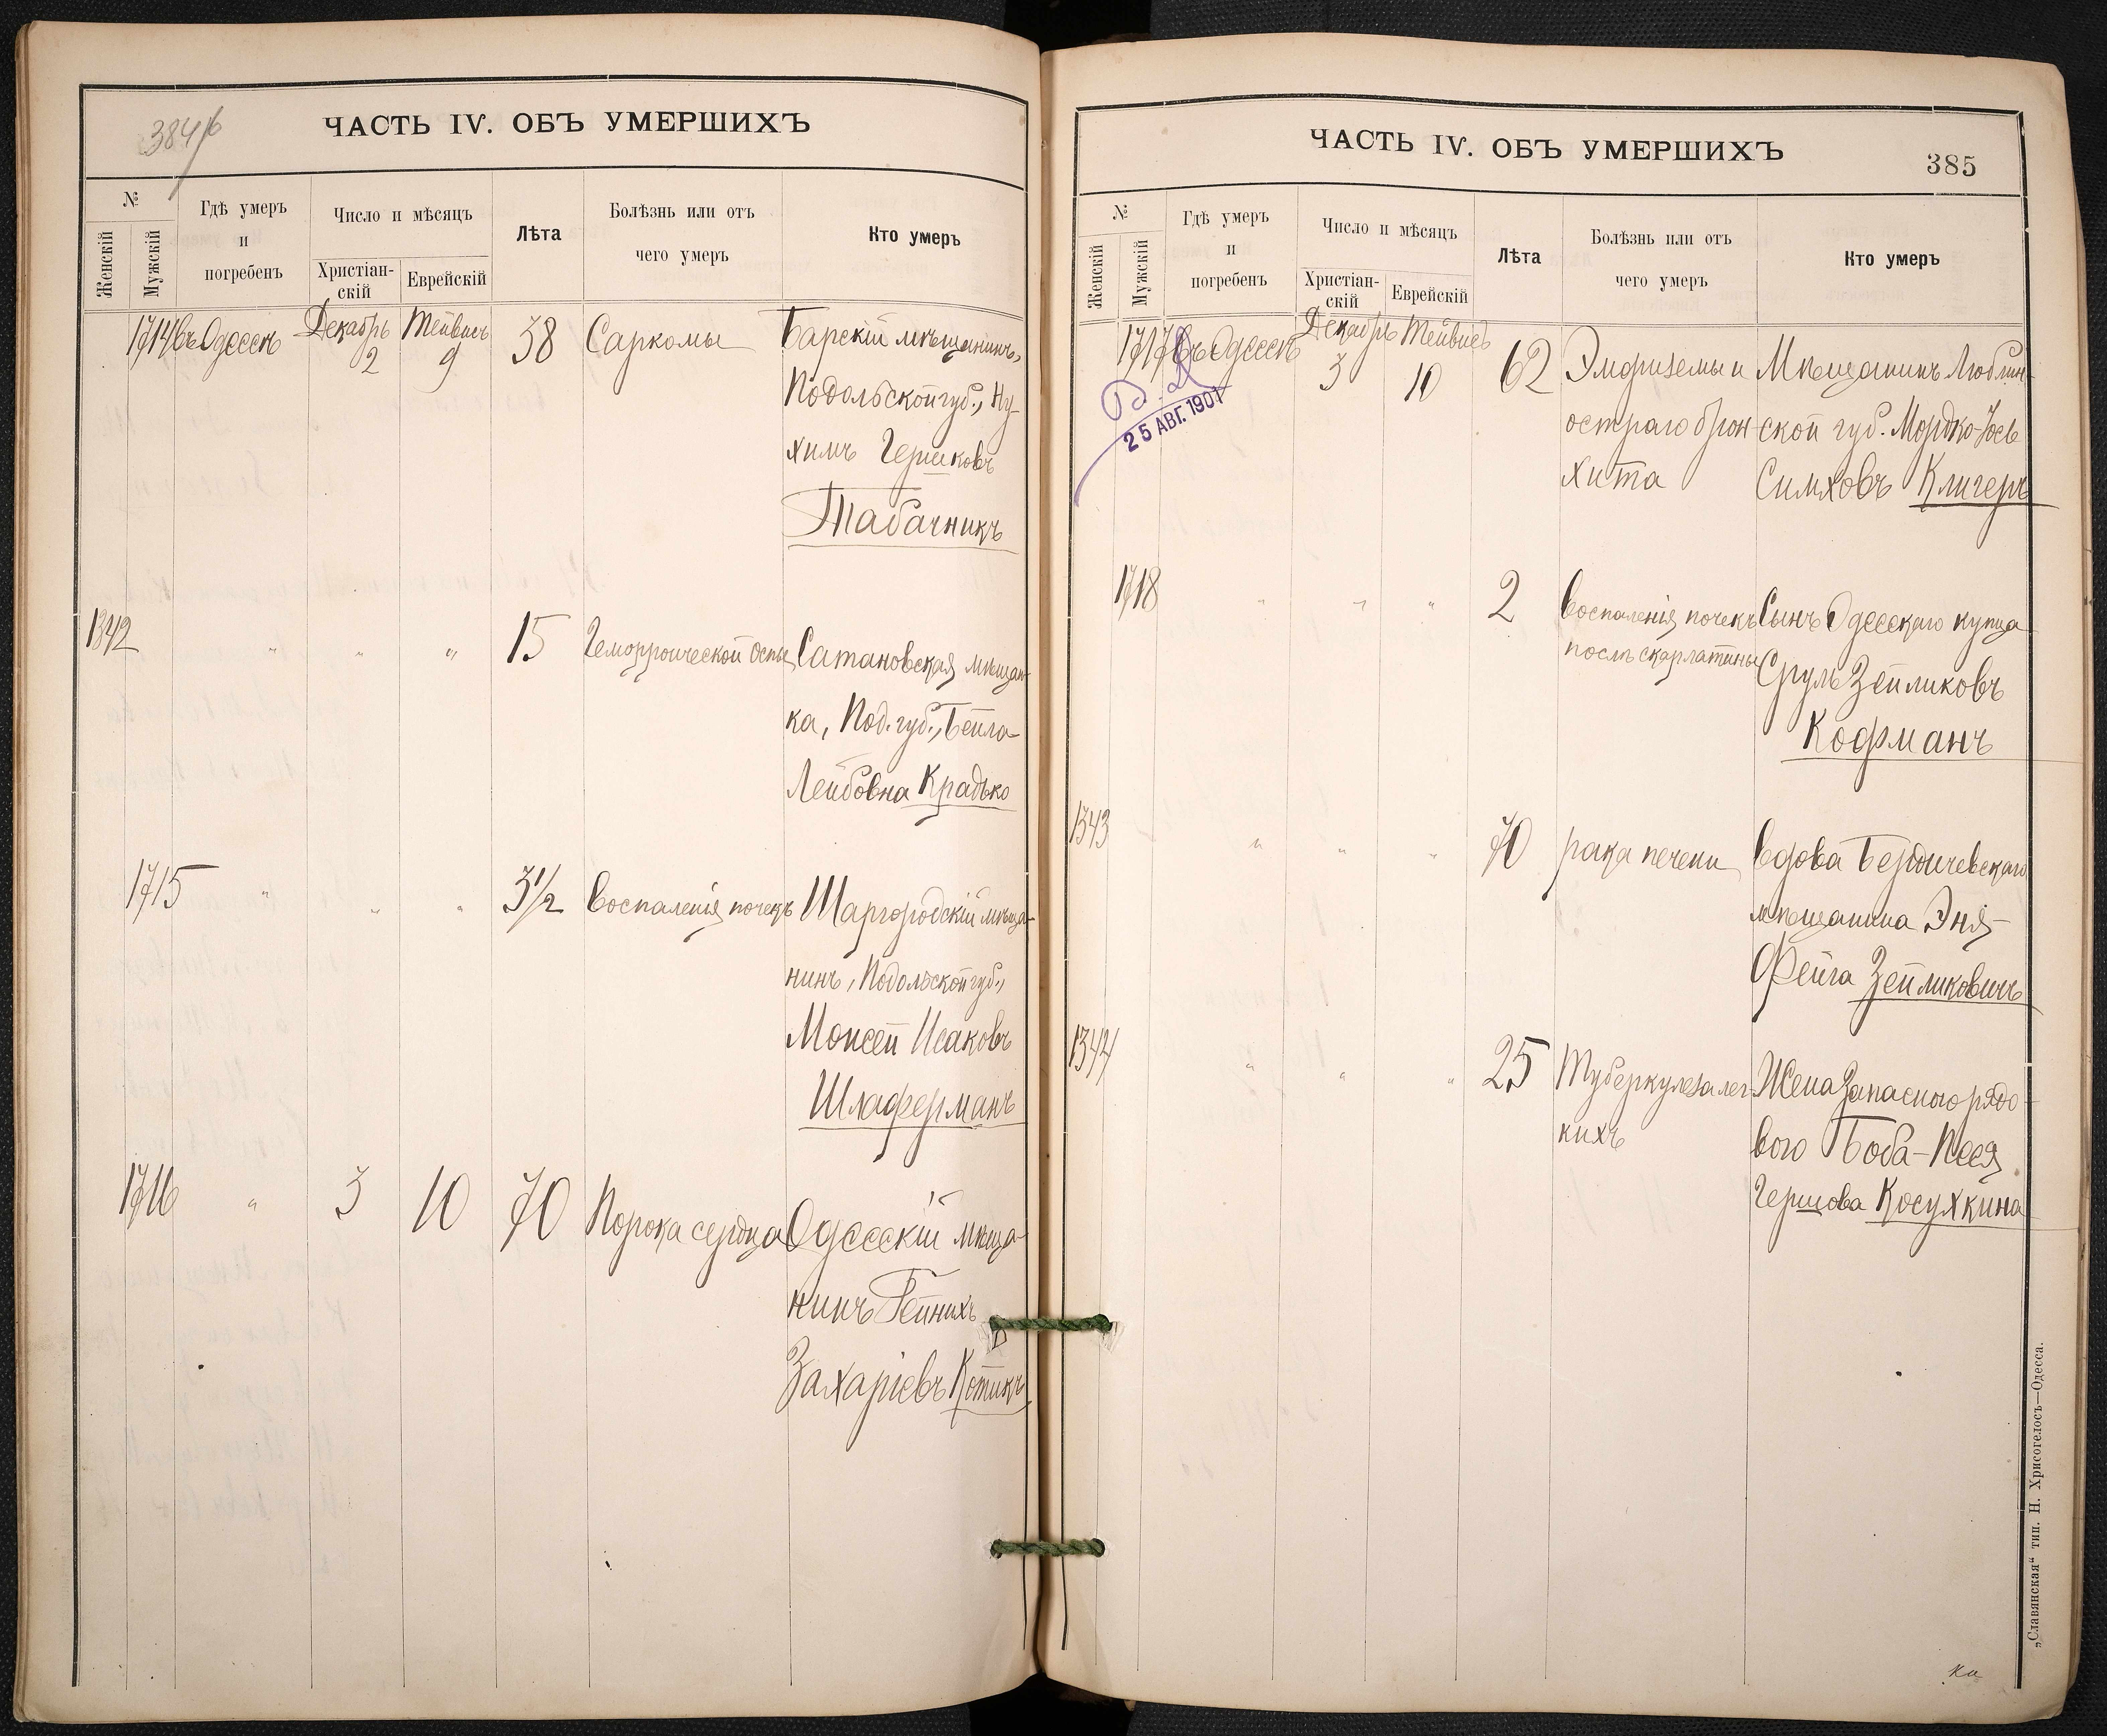 384б
ЧАСТЬ IV. ОБЪ УМЕРШИХЪ
№
Женскій
Мужскій
Гдѣ умеръ
и
погребенъ
Число и мѣсяцъ
Христіан-
скій
Еврейскій
Лѣта
Болѣзнь или отъ
чего умеръ
Кто умеръ
1714 въ Одессѣ Декабрь 2 Тейвисъ 9 38 Саркомы Барскій мѣщанинъ,
Подольской губ., Ну-
химъ Гершковъ
Табачникъ
1342 „ „ „ 15 Геморроической оспы Сатановская мѣщан-
ка, Под. губ., Бейла-
Лейбовна Крадько
1715 „ „ „ 3½ Воспаленія почекъ Шаргородскій мѣща-
нинъ, Подольской губ.,
Моисей Исаковъ
Шлаферманъ
1716 „ 3 10 70 Порока сердца Одесскій мѣща-
нинъ Гейнихъ
Захаріевъ Котикъ
ЧАСТЬ IV. ОБЪ УМЕРШИХЪ
385
№
Женскій
Мужскій
Гдѣ умеръ
и
погребенъ
Число и мѣсяцъ
Христіан-
скій
Еврейскій
Лѣта
Болѣзнь или отъ
чего умеръ
Кто умеръ
1717 въ Одессѣ Декабрь 3 Тейвисъ 10 62 Эмфиземы и Мѣщанинъ Люблин-
остраго брон- ской губ. Мордко-Іось
хита Симховъ Клигеръ
25 АВГ. 1901
1718 „ „ „ 2 Воспаленія почекъ Сынъ Одесскаго купца
послѣ скарлатины Сруль Зейликовъ
Кофманъ
1343 „ „ „ 70 рака печени Вдова Бердичевскаго
мѣщанина Эня-
Фейга Зейликовичъ
1344 „ „ „ 25 Туберкулеза лег- Жена Запасного рядо-
кихъ вого Боба-Песя
Гершова Косухкина
„Славянская“ тип. Н. Хрисогелосъ—Одесса.